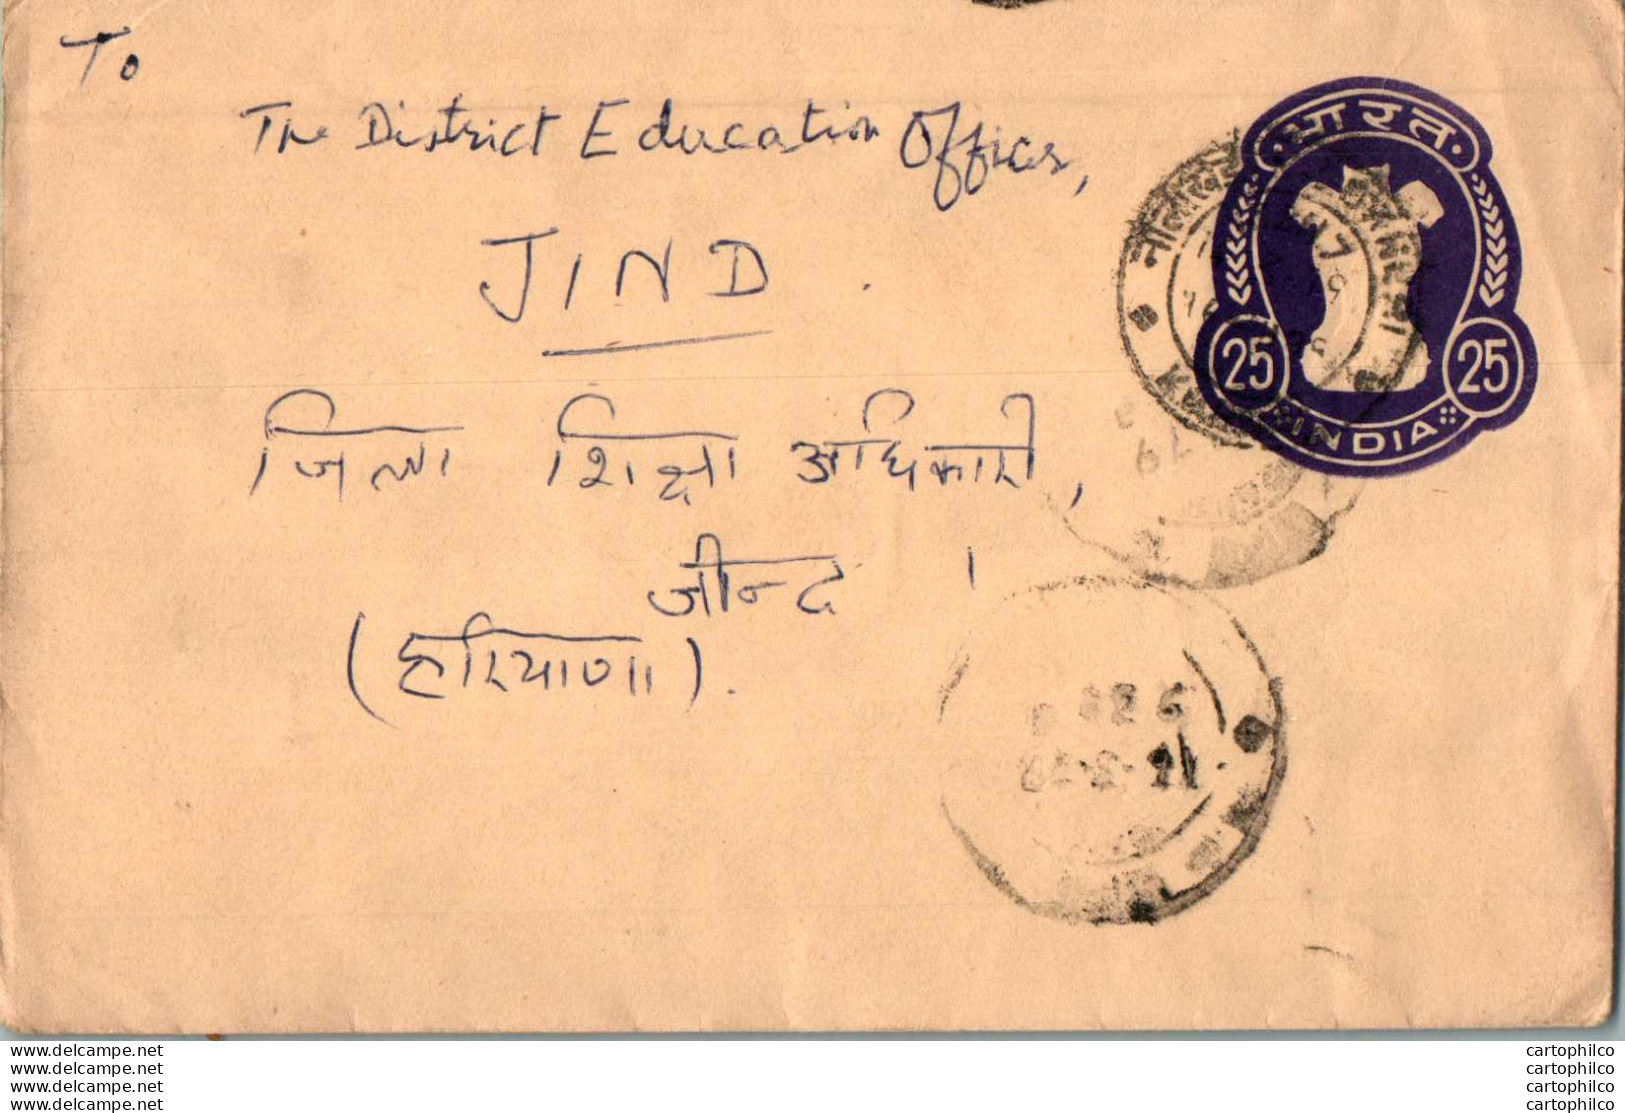 To
The District Education Officer,
JIND.
जिला शिक्षा अधिकारी,
जीन्द ।
(हरियाणा).
भारत
25 25
INDIA
79
www.delcampe.net
www.delcampe.net
www.delcampe.net
www.delcampe.net
cartophilco
cartophilco
cartophilco
cartophilco